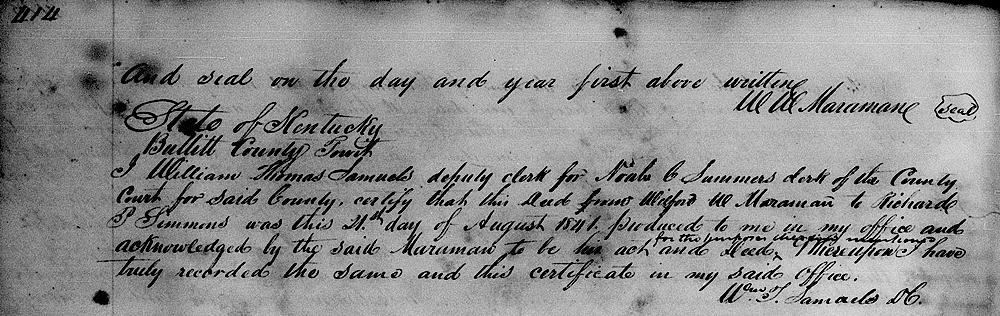 414
And seal on the day and year first above written
W W Maraman seal
State of Kentucky
Bullitt County Towit
I William Thomas Samuels deputy clerk for Noah C Summers clerk of the County
Court for said County, certify that this Deed from Wilford W Maraman to Richard
P Simmons was this 21st day of August 1841. produced to me in my office and
for the purposes therein mentioned
acknowledged by the said Maraman to be his act and Deed, Whereupon I have
truly recorded the same and this certificate in my said office.
Wm T. Samuels DC.